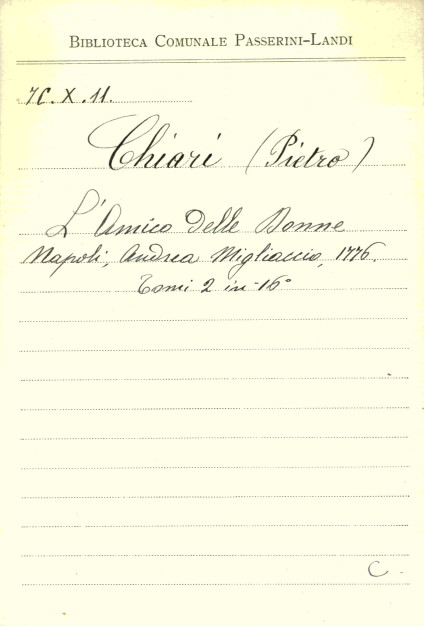 BIBLIOTECA COMUNALE PASSERINI-LANDI
7C.X.11.
Chiari (Pietro)
L'Amico Delle Donne
Napoli, Andrea Migliaccio, 1776.
Tomi 2 in-16°
C